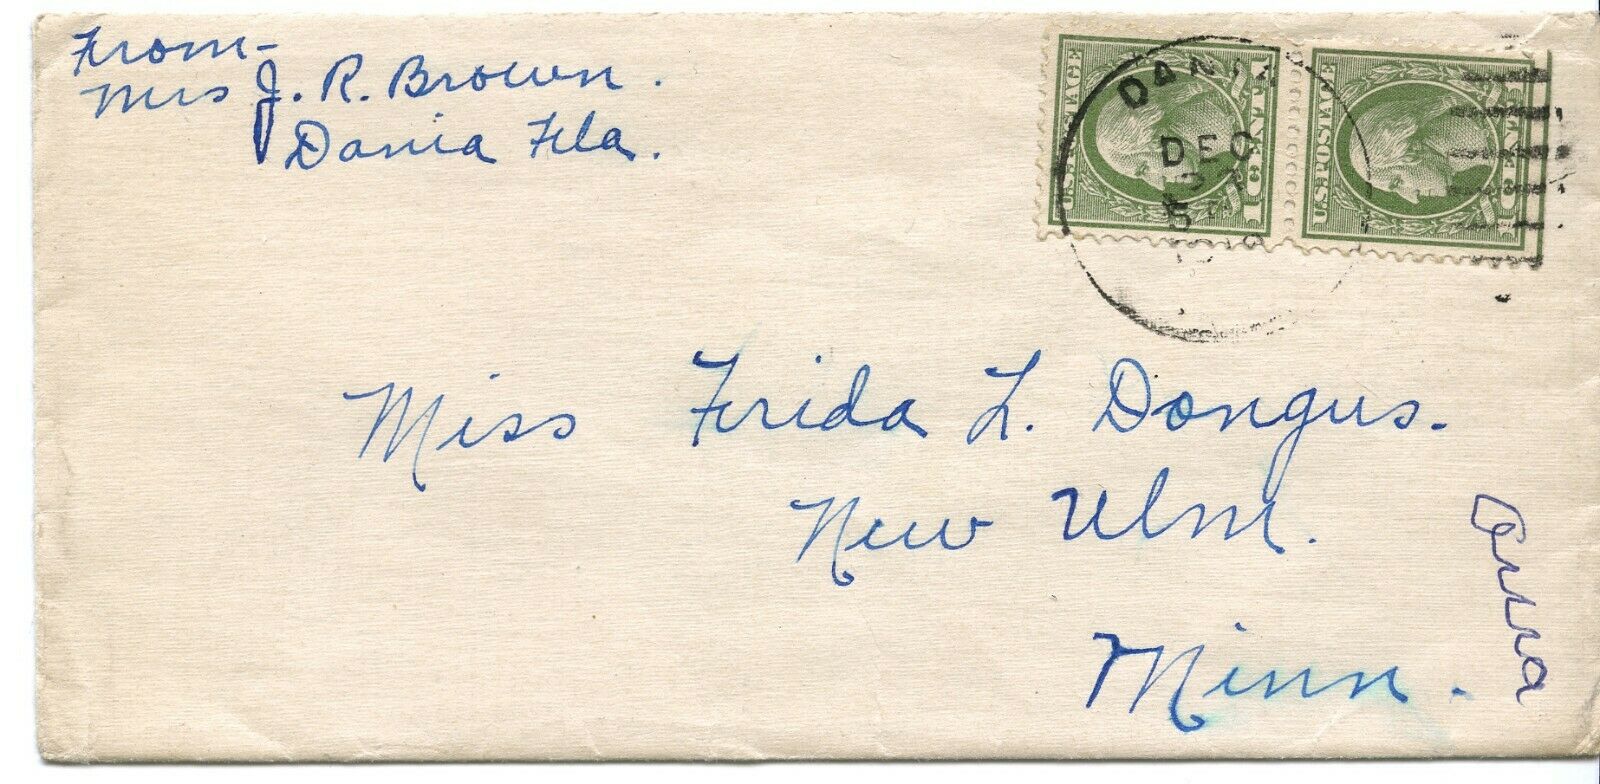 From-
Mrs J. R. Brown.
Dania Fla.
DANIA
DEC
U.S. POSTAGE
U.S. POSTAGE
Miss Frida L. Dongus.
New Ulm.
Minn.
Anna